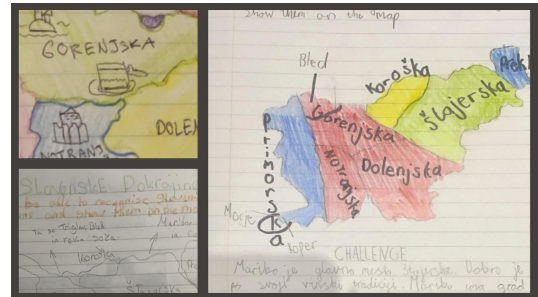 GORENJSKA
DOLEN
NOTRANJ
SlovenskE Pokrajine
be able to recognize Slovenian
and show them on the
Triglav, Bled
in reka Soča.
Maribo
Koroška
Štajerska
show them on the map
Bled
Koroška
Prek
Štajerska
Gorenjska
Primorska
Notranjska
Dolenjska
Morje
Koper
CHALLENGE
Maribor je glavno mesto Štajerske. Dobro je
po svoji vinski tradiciji. Maribor ima grad